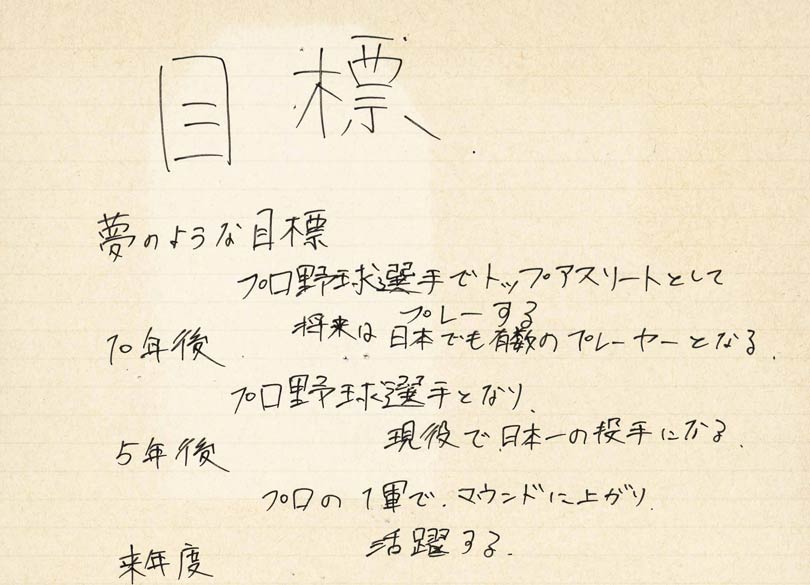 目標
夢のような目標
プロ野球選手でトップアスリートとして
プレーする
将来は日本でも有数のプレーヤーとなる.
10年後
プロ野球選手となり、
現役で、日本一の投手になる.
5年後
プロの1軍で、マウンドに上がり、
活躍する.
来年度